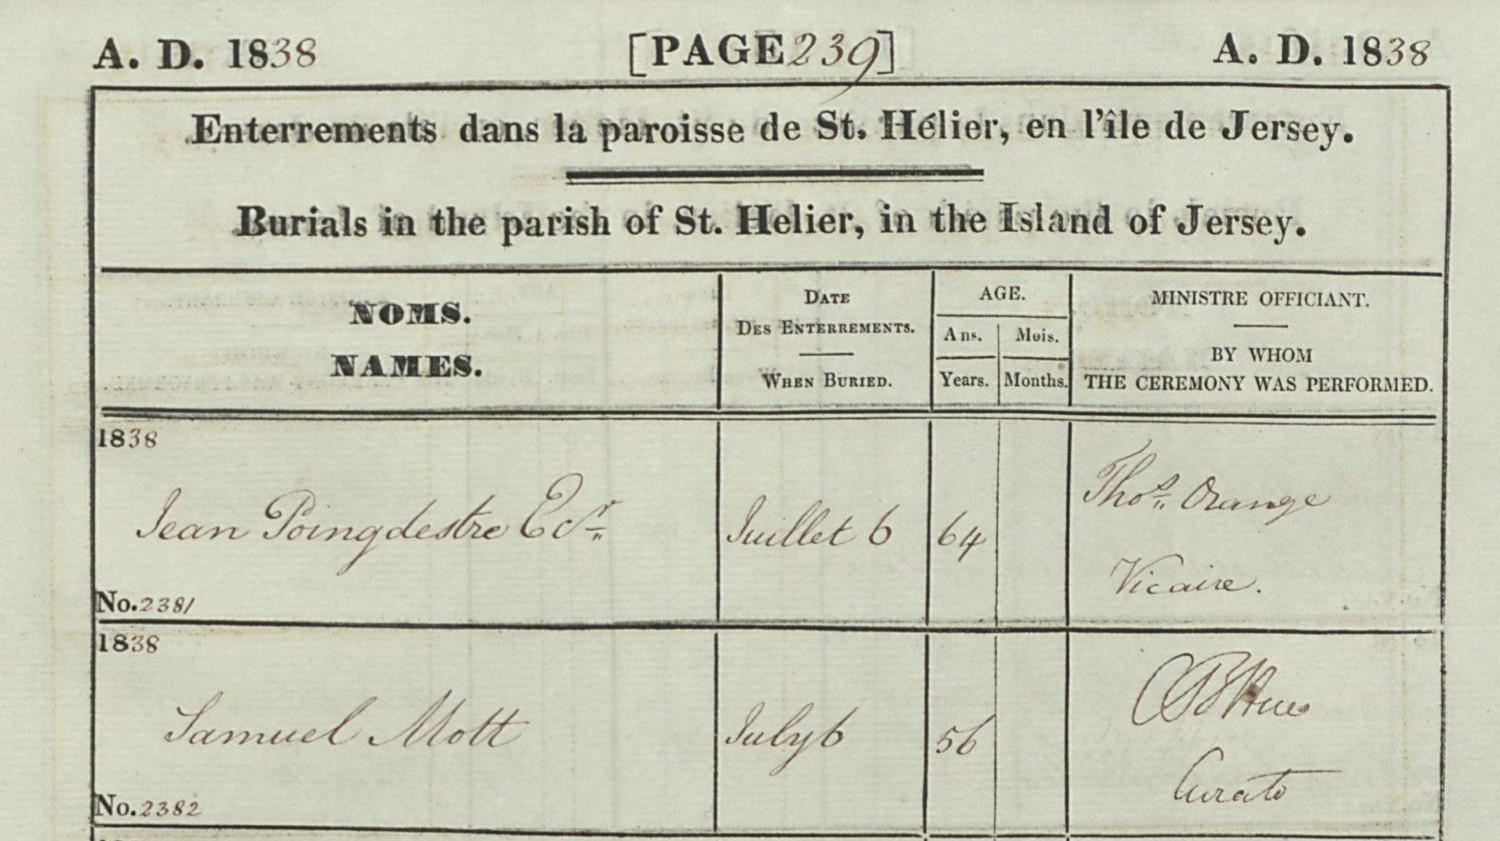 A. D. 1838 [PAGE 239] A. D. 1838
Enterrements dans la paroisse de St. Hélier, en l'île de Jersey.
Burials in the parish of St. Helier, in the Island of Jersey.
NOMS.
NAMES.
DATE
DES ENTERREMENTS.
WHEN BURIED.
AGE.
Ans. Mois.
Years. Months.
MINISTRE OFFICIANT.
BY WHOM
THE CEREMONY WAS PERFORMED.
1838
Jean Poingdestre Ecr. Juillet 6 64 Thos. Orange
Vicaire.
No. 2381
1838
Samuel Mott July 6 56 Hue
Curate
No. 2382